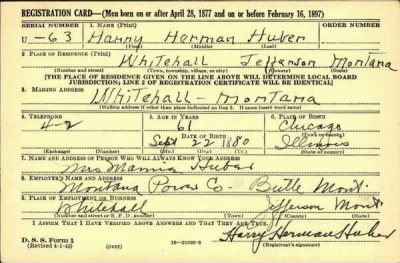 REGISTRATION CARD—(Men born on or after April 28, 1877 and on or before February 16, 1897)
SERIAL NUMBER 1. NAME (Print) ORDER NUMBER
U-63 Harry Herman Huber
(First) (Middle) (Last)
2. PLACE OF RESIDENCE (Print)
Whitehall Jefferson Montana
(Number and street) (Town, township, village, or city) (County) (State)
[THE PLACE OF RESIDENCE GIVEN ON THE LINE ABOVE WILL DETERMINE LOCAL BOARD
JURISDICTION; LINE 2 OF REGISTRATION CERTIFICATE WILL BE IDENTICAL]
3. MAILING ADDRESS
Whitehall - Montana
[Mailing address if other than place indicated on line 2. If same insert word same]
4. TELEPHONE 5. AGE IN YEARS 6. PLACE OF BIRTH
4-2 61 Chicago
DATE OF BIRTH (Town or county)
Sept 22 1880 Illinois
(Exchange) (Number) (Mo.) (Day) (Yr.) (State or country)
7. NAME AND ADDRESS OF PERSON WHO WILL ALWAYS KNOW YOUR ADDRESS
Mrs Mamie Huber
8. EMPLOYER'S NAME AND ADDRESS
Montana Power Co - Butte Mont.
9. PLACE OF EMPLOYMENT OR BUSINESS
Whitehall Jefferson Mont
(Number and street or R. F. D. number) (Town) (County) (State)
I AFFIRM THAT I HAVE VERIFIED ABOVE ANSWERS AND THAT THEY ARE TRUE.
D. S. S. Form 1
(Revised 4-1-42) (over) Harry Herman Huber
(Registrant's signature)